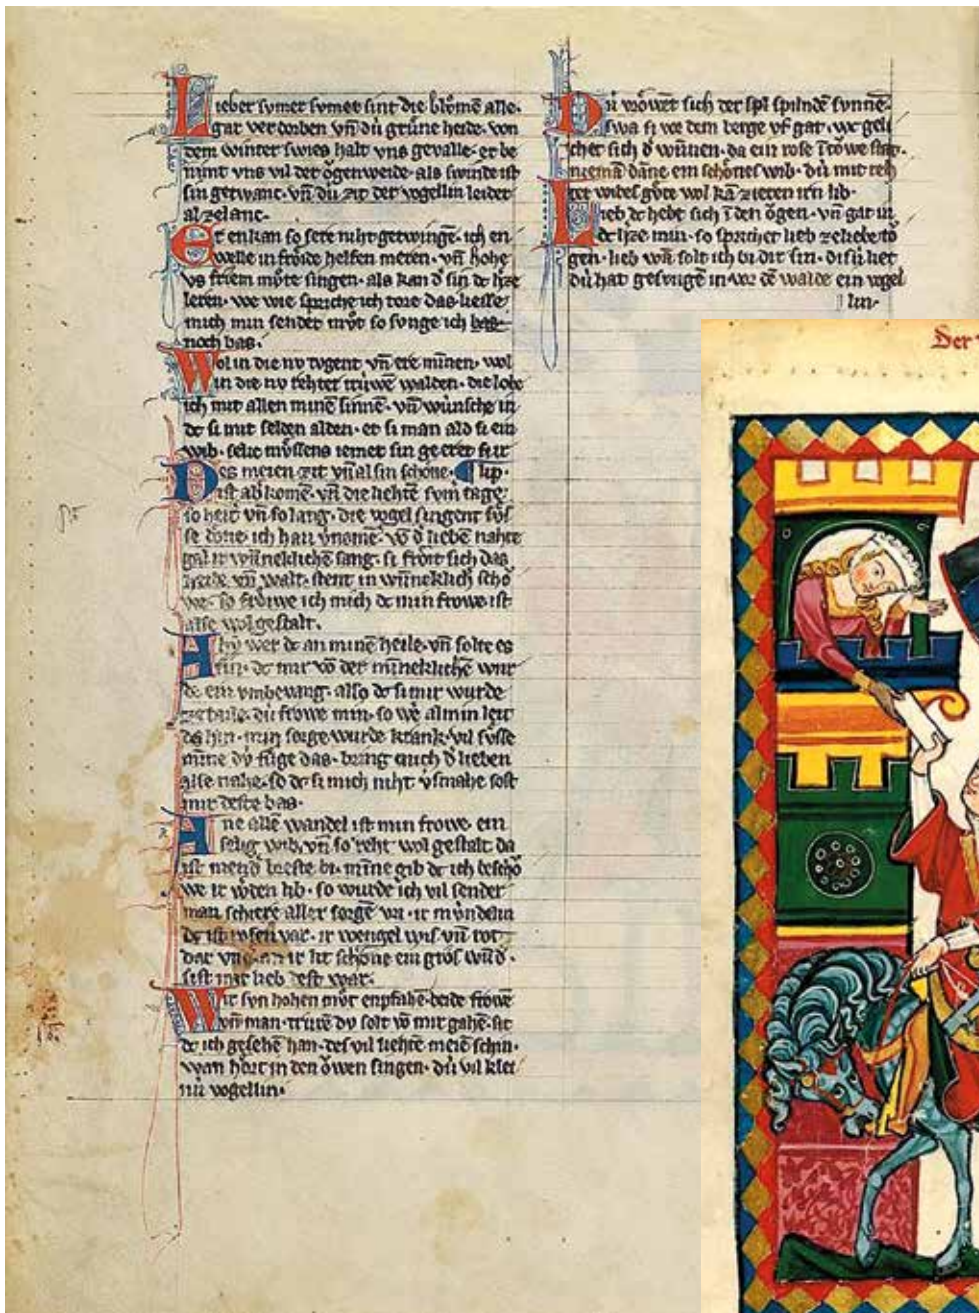 Lieber sumer sumer sint die blůmen alle.
gar verdorben vn̄ dú grůne heide. von
dem winter swies halt vns geualle. er be
nimt vns vil der ŏgen weide. als swinde ist
sin getwanc. vn̄ dú zit der vogellin leider
al ze lanc.
Er enkan so sere niht getwingē. ich en
welle in frŏide helfen meren. vn̄ hohe
vs friem můte singen. als kan d̄ sin dc h̾ze
leren. we wie spriche ich tore das. liesse
mich min sender můt so sunge ich bas
noch bas.
Wol in die nv tvgent vn̄ ere minnen. wol
in die nv rehter trúwe walden. die lobe
ich mit allen minē sinnē. vn̄ wúnsche in
dc si mit selden alden. er si man ald si ein
wib. selic mŭssens iemer sin geeret si ir
lip.
Des meien zit vn̄ al sin schŏne.
ist ab komē. vn̄ die liehtē sum tage
so heis vn̄ so lang. die vogel singent sŭs
se dŏne. ich han v̾nomē. vō d̄ lieben nahte
gal ir wūneklichē sang. si frŏit sich das
heide. vn̄ walt. stent in wūneklich schŏ
we. so frŏiwe ich mich dc min frowe ist
alse wol gestalt.
Ahy wer dc an minē heile. vn̄ solte es
sin. dc mir vō der mineklichē wur
de ein vmbevang. also dc si mir wurde
ze teile. dú frowe min. so we al min leit
da hin. min sorge wurde krank. vil sŭsse
mīne dv fŭge das. bring mich d̄ lieben
alse nahe. so dc si mich niht v̾smahe. so ist
mir deste bas.
Ane allē wandel ist min frowe. ein
selig wib. vn̄ so reht wol gestalt. da
ist
beste bi. mīne gib dc ich beschŏ
we ir w̾den lib. so wurde ich vil sender
man schiere aller sorgē vri. ir mv́ndelin
dc ist rosen var. ir wengel wis vn̄ rot
dar
lit schŏne ein
sist mir lieb
Wir svn hohen můt enpfahē beide frowē
vn̄ man. trurē dv solt vō mir gahē. sit
dc ich gesehē han. des vil liehtē meiē schin.
wan hŏrt in den ŏwen singen. dú vil klei
nú vogellin.
Dú wŏwet sich der spilndē sunnē.
swa si vor dem berge vf gat. wc geli
chet sich d̄ wūnen. da ein rose ī towe stat.
niemā dāne ein schŏnes wib. dú mit reh
ter wibes gŭte wol kā zieren irn lib.
Lieb dc hebt sich ī den ŏgen. vn̄ gat in
dc h̾ze min. so sprichet lieb ze liebe tŏ
gen. lieb wā solt ich bi dir sin. disú liet
dú hat gesungē in vor dē walde ein vogel
lin.
Der